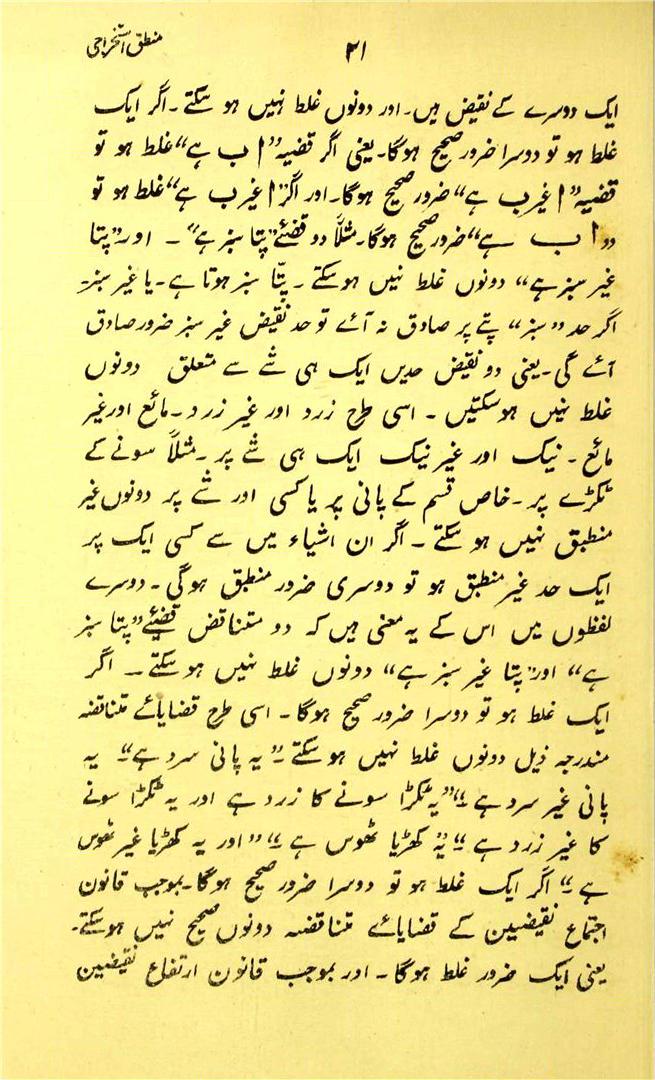 منطق استخراجی
۳۱
ایک دوسرے کے نقیض ہیں۔ اور دونوں غلط نہیں ہو سکتے۔ اگر ایک
غلط ہو تو دوسرا ضرور صحیح ہوگا۔ یعنی اگر قضیہ ”ا ب ہے“ غلط ہو تو
قضیہ ”ا غیر ب ہے“ ضرور صحیح ہوگا۔ اور اگر ”ا غیر ب ہے“ غلط ہو تو
”ا ب ہے“ ضرور صحیح ہوگا۔ مثلاً دو قضئے ”پتا سبز ہے“۔ اور ”پتا
غیر سبز ہے“ دونوں غلط نہیں ہو سکتے۔ پتّا سبز ہوتا ہے۔ یا غیر سبز۔
اگر حد ”سبز“ پتے پر صادق نہ آئے تو حد نقیض غیر سبز ضرور صادق
آئے گی۔ یعنی دو نقیض حدیں ایک ہی شے سے متعلق دونوں
غلط نہیں ہوسکتیں۔ اسی طرح زرد اور غیر زرد۔ مائع اور غیر
مائع۔ نیک اور غیر نیک ایک ہی شے پر۔ مثلاً سونے کے
ٹکڑے پر۔ خاص قسم کے پانی پر یا کسی اور شے پر دونوں غیر
منطبق نہیں ہو سکتے۔ اگر ان اشیاء میں سے کسی ایک پر
ایک حد غیر منطبق ہو تو دوسری ضرور منطبق ہوگی۔ دوسرے
لفظوں میں اس کے یہ معنی ہیں کہ دو متناقض قضیئے ”پتا سبز
ہے“ اور ”پتا غیر سبز ہے“ دونوں غلط نہیں ہو سکتے۔ اگر
ایک غلط ہو تو دوسرا ضرور صحیح ہوگا۔ اسی طرح قضایائے متناقضہ
مندرجہ ذیل دونوں غلط نہیں ہو سکتے۔ ”یہ پانی سرد ہے“۔ یہ
پانی غیر سرد ہے“۔ ”یہ ٹکڑا سونے کا زرد ہے اور یہ ٹکڑا سونے
کا غیر زرد ہے“۔ ”یہ کھڑیا ٹھوس ہے“۔ ”اور یہ کھڑیا غیر ٹھوس
ہے“۔ اگر ایک غلط ہو تو دوسرا ضرور صحیح ہوگا۔ بموجب قانون
اجتماع نقیضین کے قضایائے متناقضہ دونوں صحیح نہیں ہو سکتے۔
یعنی ایک ضرور غلط ہوگا۔ اور بموجب قانون ارتفاع نقیضین